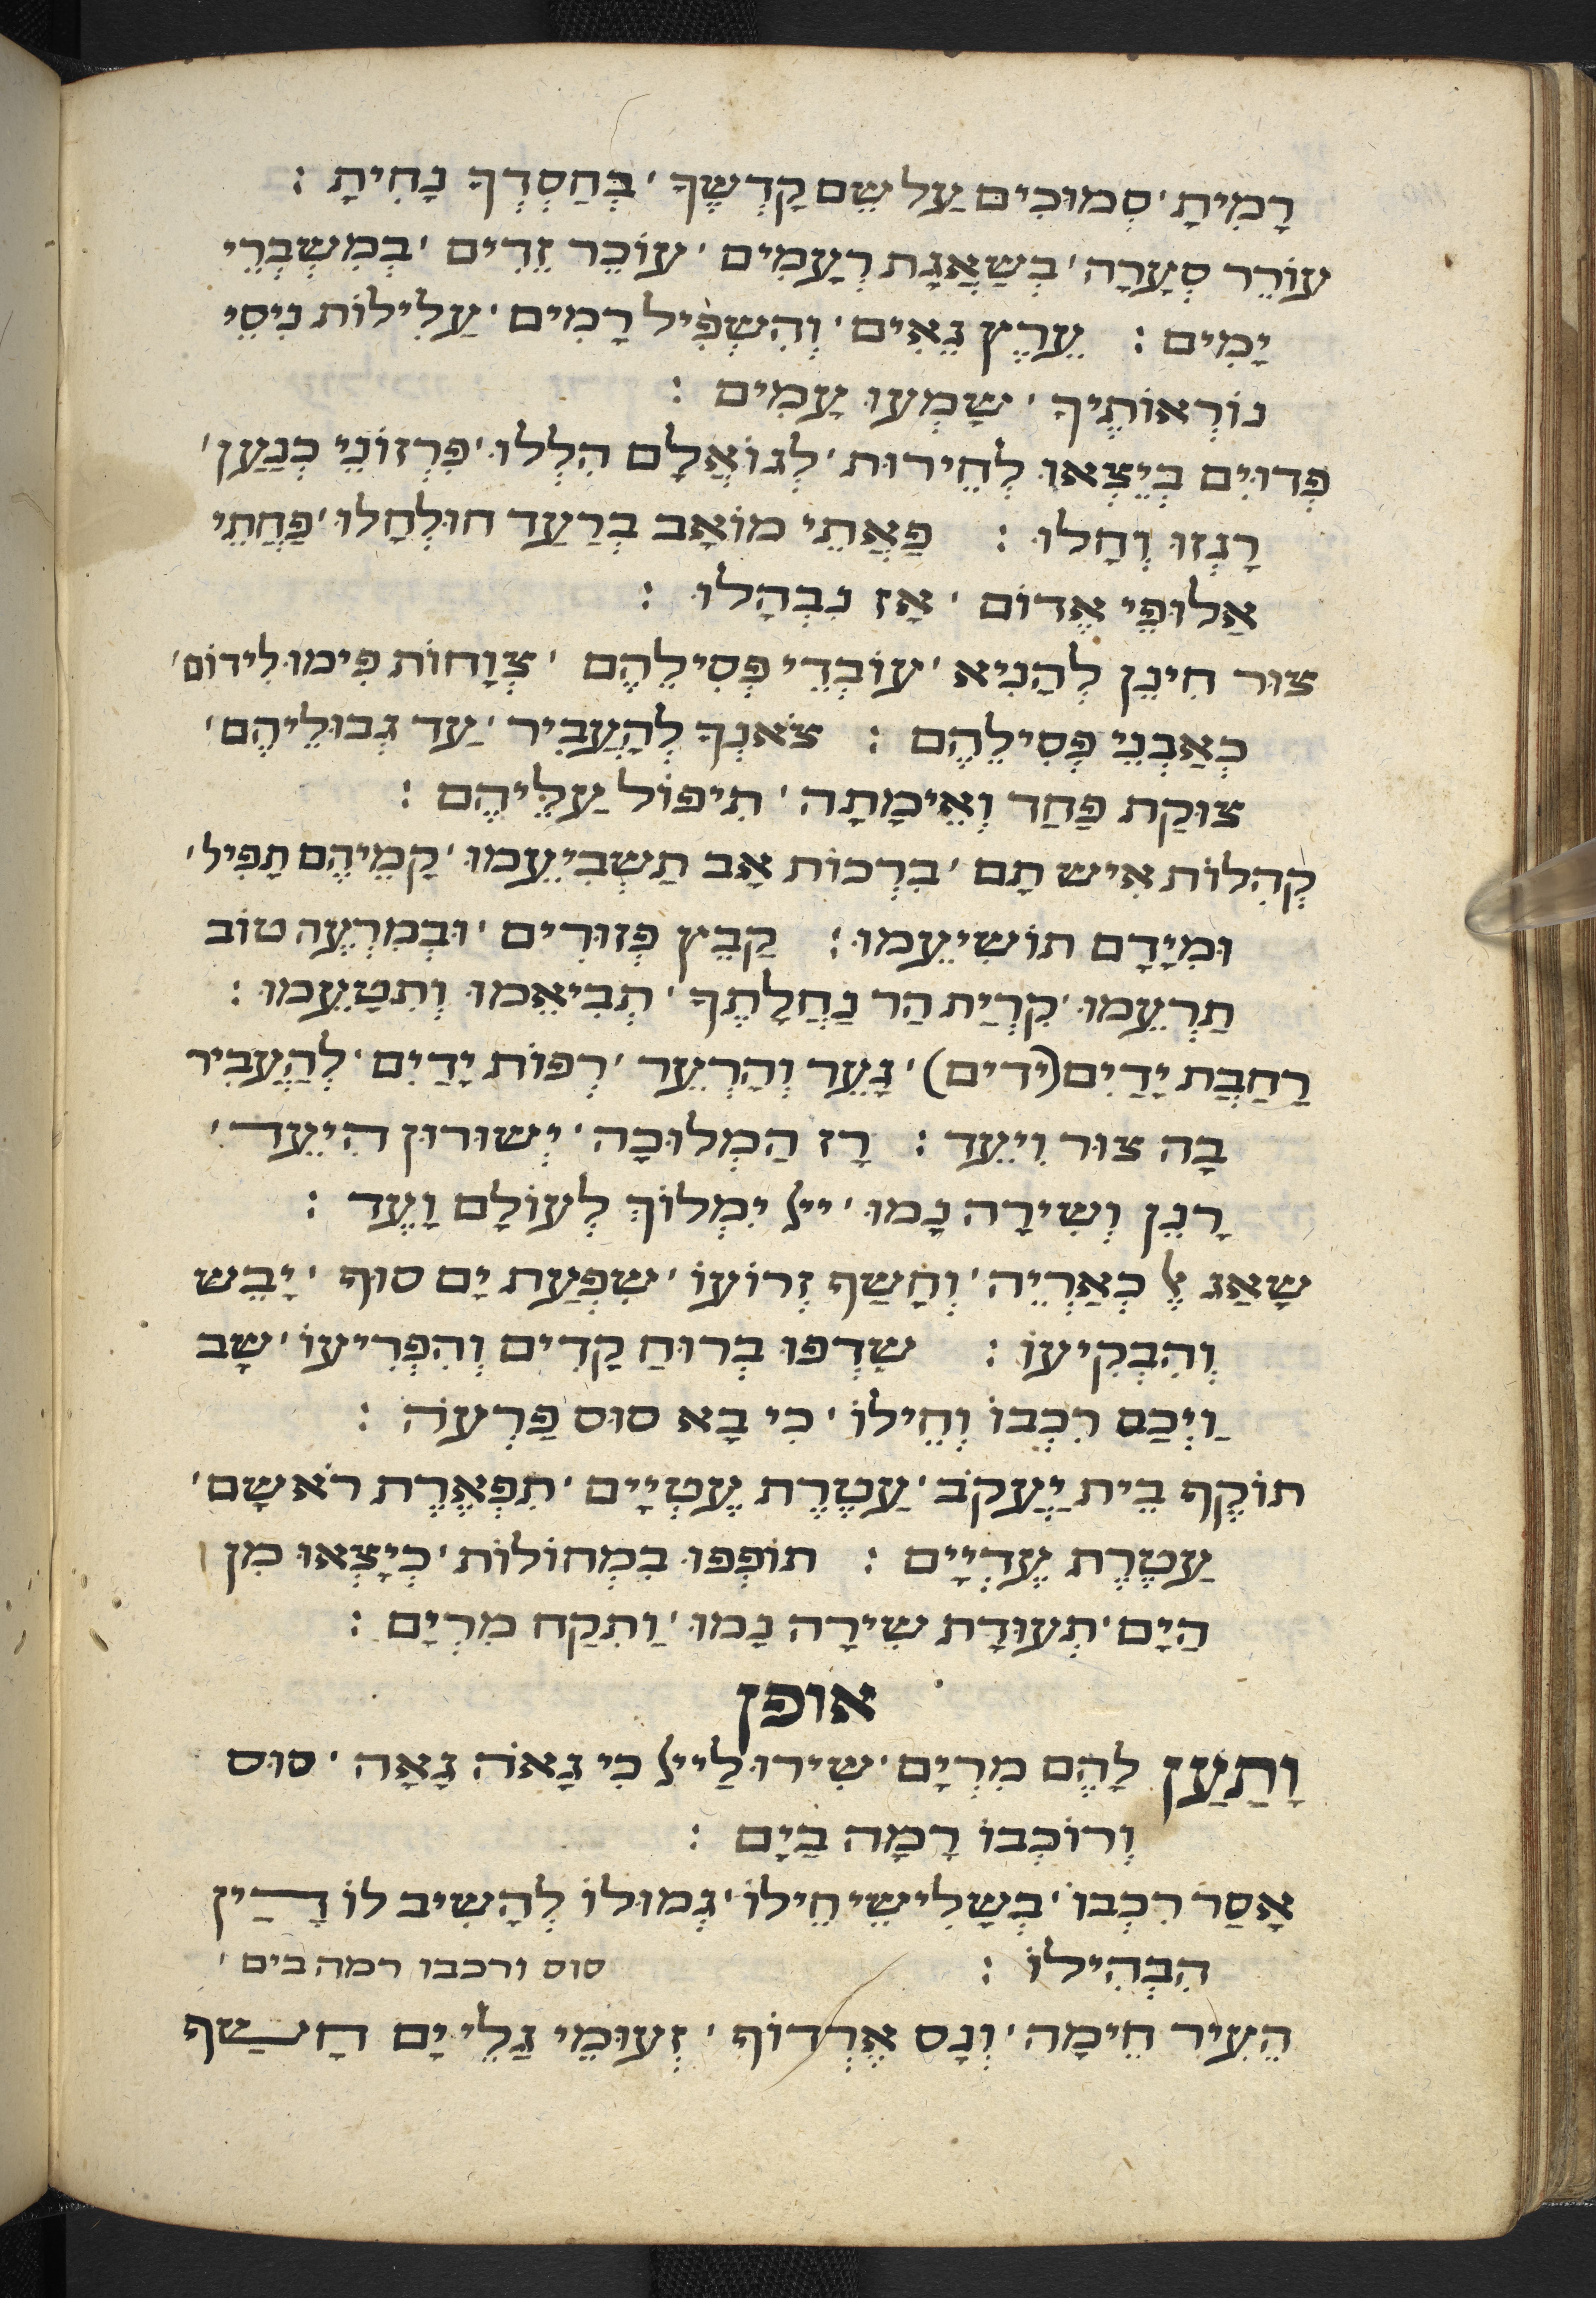 רָמִיתָ׳ סְמוּכִים עַל שֵׁם קָדְשֶׁךָ׳ בְּחַסְדְךָ נָחִיתָ :
עוֹרֵר סְעָרָה׳ בְּשַׁאֲגַת רְעָמִים׳ עוֹכֵר זֵדִים׳ בְּמִשְׁבְּרֵי
יָמִים : עָרֶץ גֵּאִים׳ וְהִשְׁפִּיל רָמִים׳ עֲלִילוֹת נִיסֵי
נוֹרְאוֹתֶיךָ׳ שָׁמְעוּ עָמִים :
פְּדוּיִם בְּיֵצְאוּ לְחֵירוּת׳ לְגוֹאֲלָם הִלְלוּ׳ פִּרְזוֹנֵי כְּנַעַן׳
רָגְזוּ וְחָלוּ : פַּאֲתֵי מוֹאָב בְּרַעַד חוּלְחָלוּ׳ פַּחֲתֵי
אַלּוּפֵי אֱדוֹם׳ אָז נִבְהָלוּ :
צוּר חִינֵן לְהָנִיא׳ עוֹבְדֵי פְּסִילֵהֶם׳ צְוָחוֹת פִּימוּ לִידוֹם׳
כְּאַבְנֵי פְסִילֵהֶם : צֹאנְךָ לְהַעֲבִיר׳ עַד גְּבוּלֵיהֶם׳
צוּקַת פַּחַד וְאֵימָתָה׳ תִּיפּוֹל עֲלֵיהֶם :
קְהִלּוֹת אִישׁ תָּם׳ בִּרְכוֹת אָב תַּשְׂבִּיעֵמוּ׳ קָמֵיהֶם תַּפִּיל׳
וּמִיָּדָם תּוֹשִׁיעֵמוּ : קַבֵּץ פְּזוּרִים׳ וּבְמִרְעֶה טוֹב
תַּרְעֵמוּ׳ קִרְיַת הַר נַחֲלָתֶךָ׳ תְּבִיאֵמוּ וְתִטָּעֵמוּ :
רַחֲבַת יָדַיִם (ידים)׳ נָעֵר וְהָרְעֵד׳ רְפוֹת יָדַיִם׳ לְהַעֲבִיר
בָּהּ צוּר וִיעֵד : רָז הַמְּלוּכָה׳ יְשׁוּרוּן הִיעֵד׳
רָנֵן וְשִׁירָה נָמוּ׳ ייל יִמְלוֹךְ לְעוֹלָם וָעֶד :
שָׁאַג אֵל כְּאַרְיֵה׳ וְחָשַׂף זְרוֹעוֹ׳ שִׁפְעַת יָם סוּף׳ יָבֵשׁ
וְהִבְקִיעוֹ : שִׁדְּפוֹ בְּרוּחַ קָדִים וְהִפְרִיעוֹ׳ שָׁב
וַיְכַס רִכְבּוֹ וְחֵילוֹ׳ כִּי בָא סוּס פַּרְעֹה :
תּוֹקֶף בֵּית יַעֲקֹב׳ עֲטֶרֶת עֶטְיָיִם׳ תִּפְאֶרֶת רֹאשָׁם׳
עֲטֶרֶת עֶדְיָיִם : תּוֹפְפוּ בִמְחוֹלוֹת׳ כְּיָצְאוּ מִן
הַיָּם׳ תְּעוּדַת שִׁירָה נָמוּ׳ וַתִּקַּח מִרְיָם :
אופן
וַתַּעַן לָהֶם מִרְיָם׳ שִׁירוּ לַייל כִּי גָאֹה גָּאָה׳ סוּס
וְרוֹכְבוֹ רָמָה בַיָּם :
אָסַר רִכְבּוֹ׳ בְּשָׁלִישֵׁי חֵילוֹ׳ גְּמוּלוֹ לְהָשִׁיב לוֹ דַיָּן
הִבְהִילוֹ : סוס ורכבו רמה בים׳
הֵעִיר חֵימָה׳ וְנָס אֶרְדּוֹף׳ זְעוּמֵי גַּלֵּי יָם חָשַׂף